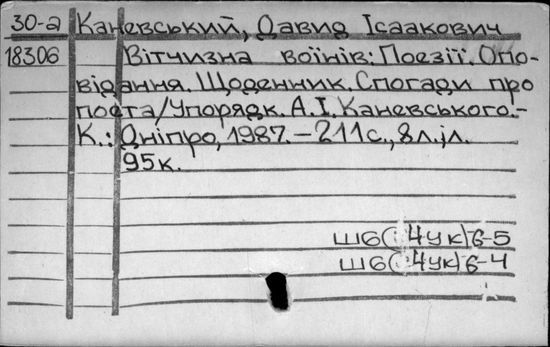 30-а Каневський, Давид Ісаакович
18306 Вітчизна воїнів: Поезії. Опо-
відання. Щоденник. Спогади про
поета/Упорядк. А.І. Каневського.-
К.: Дніпро, 1987. – 211с., 8л.іл.
95к.
Ш6(:4Ук)6-5
Ш6(:4Ук)6-4